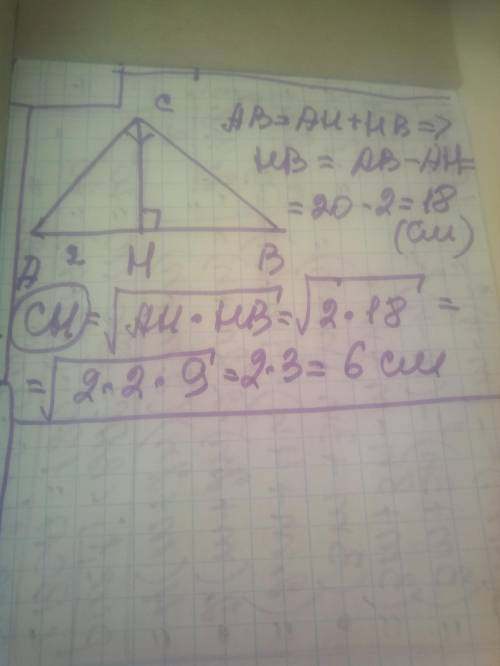 C
AB = AH + HB =>
HB = AB - AH =
= 20 - 2 = 18
(см)
A 2 H B
CH = √AH · HB = √2 · 18 =
= √2 · 2 · 9 = 2 · 3 = 6 см